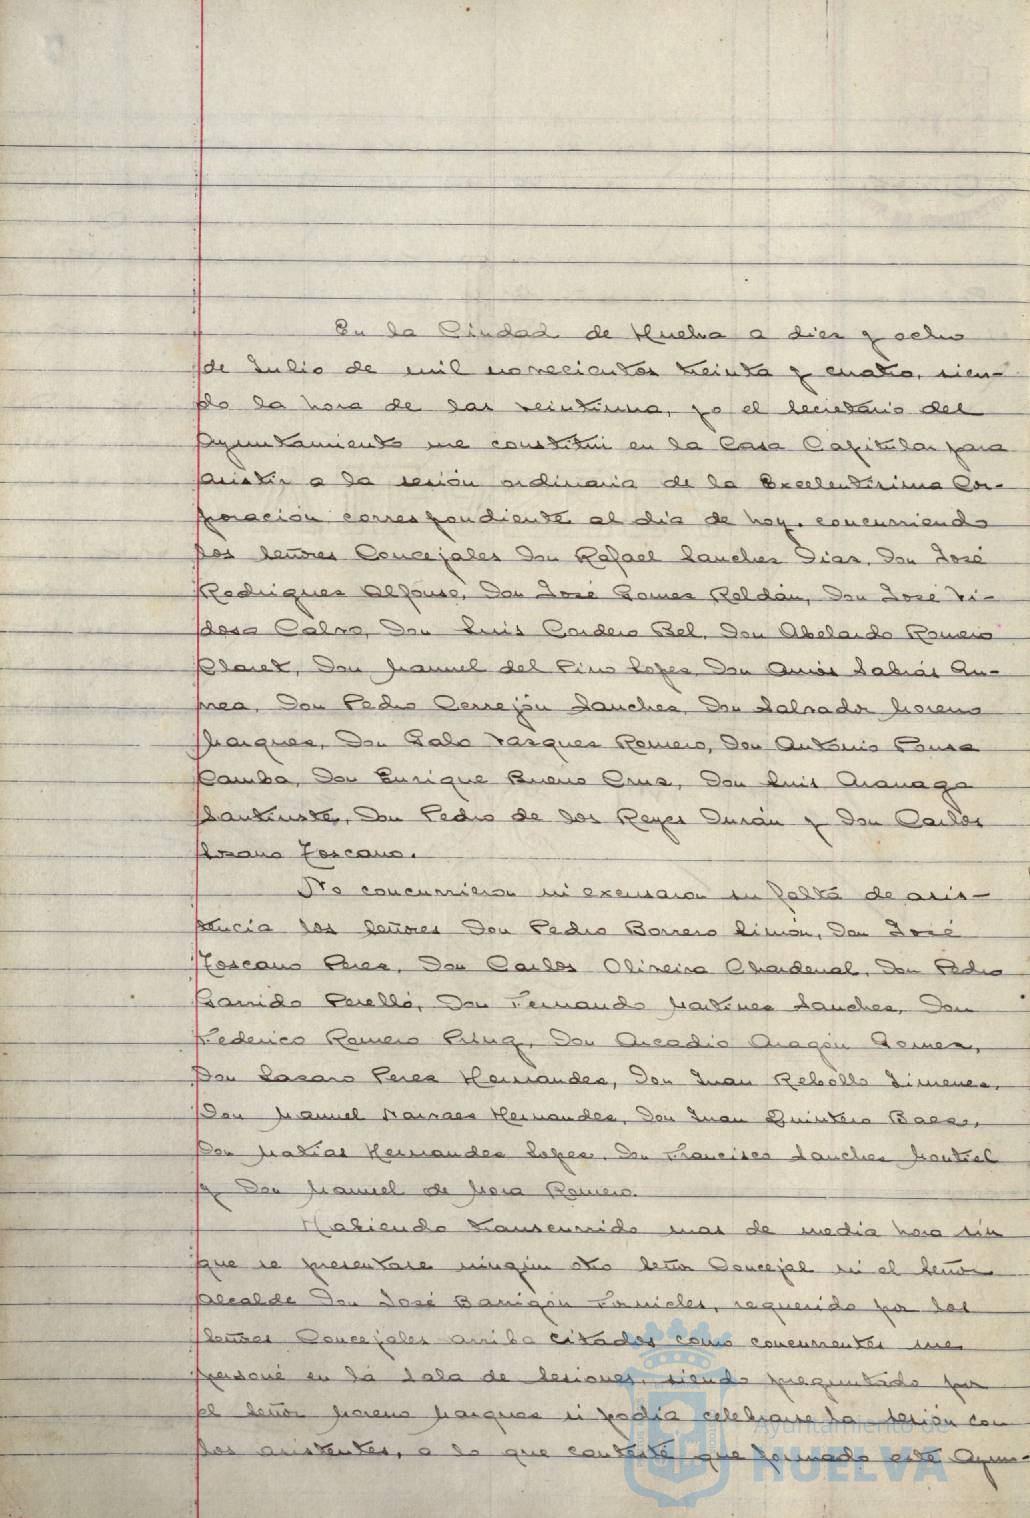 En la Ciudad de Huelva a diez y ocho
de Julio de mil novecientos treinta y cuatro, sien-
do la hora de las veintiuna, yo el Secretario del
Ayuntamiento me constituí en la Casa Capitular para
asistir a la sesión ordinaria de la Excelentísima Cor-
poración correspondiente al día de hoy, concurriendo
los Señores Concejales Don Rafael Sanchez Diaz, Don José
Rodriguez Alfonso, Don José Gomez Roldán, Don José Vi-
dosa Calvo, Don Luis Cordero Bel, Don Abelardo Romero
Claret, Don Manuel del Pino Lopez, Don Amós Sabrás Gu-
rrea, Don Pedro Cerrejón Sanchez, Don Salvador Moreno
Marquez, Don Galo Vazquez Romero, Don Antonio Pousa
Camba, Don Enrique Bueno Cruz, Don Luis Aranaga
Santiuste, Don Pedro de los Reyes Durán y Don Carlos
Lozano Toscano.
No concurrieron ni excusaron su falta de asis-
tencia los Señores Don Pedro Borrero Limón, Don José
Toscano Perez, Don Carlos Oliveira Chardenal, Don Pedro
Garrido Perelló, Don Fernando Martinez Sanchez, Don
Federico Romero Don Arcadio Aragón Gomez,
Don Lazaro Perez Hernandez, Don Juan Rebollo Jimenez,
Don Manuel Narvaez Hernandez, Don Juan Quintero Baez,
Don Matías Hernandez Lopez, Don Francisco Sanchez Montiel
y Don Manuel de Mora Romero.
Habiendo transcurrido mas de media hora sin
que se presentase ningún otro Señor Concejal ni el Señor
Alcalde Don José Barrigón Fornieles, requerido por los
Señores Concejales arriba citados como concurrentes me
personé en la Sala de Sesiones, siendo preguntado por
el Señor Moreno Marquez si podía celebrarse la sesión con
los asistentes, a lo que contesté que formado este Ayun-
Ayuntamiento de
HUELVA